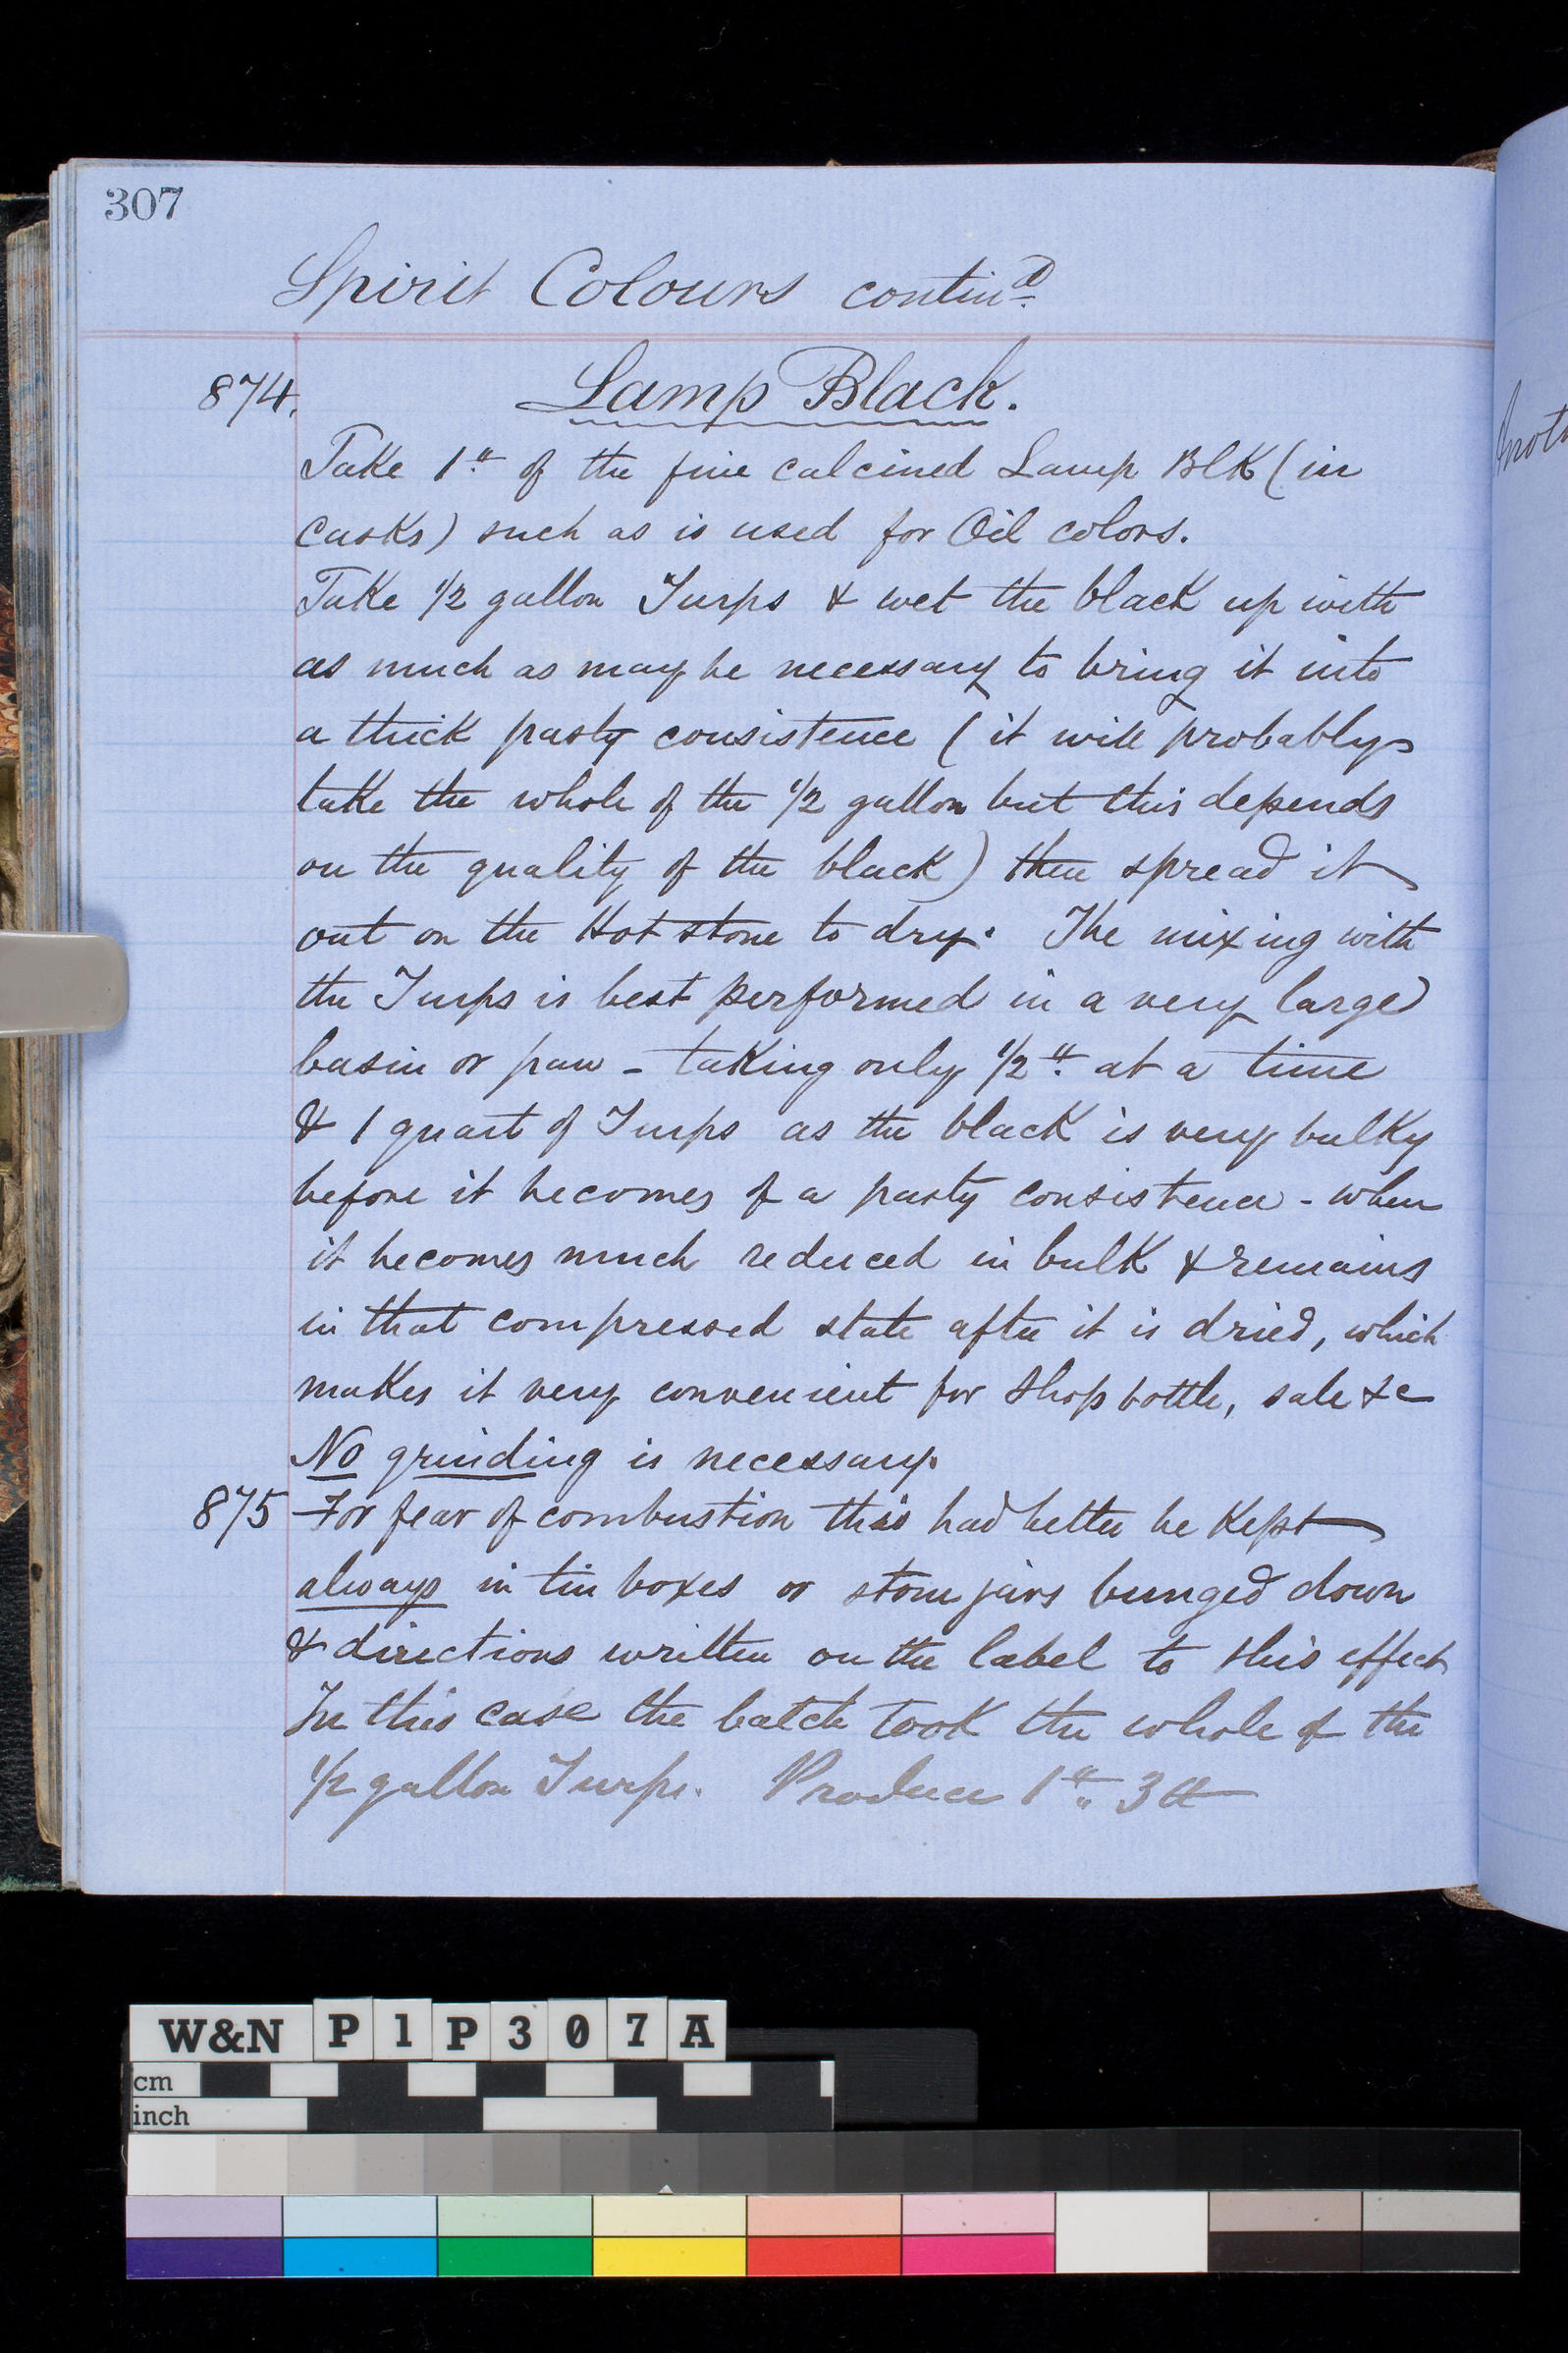 307
Spirit Colours contin.d
874. Lamp Black.
Take 1 " of the fine calcined Lamp Blk (in
casks) such as is used for Oil colors.
Take 1/2 gallon Turps & wet the black up with
as much as may be necessary to bring it into
a thick pasty consistence (it will probably
take the whole of the 1/2 gallon but this depends
on the quality of the black) then spread it
out on the Hot stone to dry. The mixing with
the Turps is best performed in a very large
basin or pan - taking only 1/2 " at a time
& 1 quart of Turps as the black is very bulky
before it becomes of a pasty consistence - when
it becomes much reduced in bulk & remains
in that compressed state after it is dried, which
makes it very convenient for shop bottle, sale &c
No grinding is necessary.
875 For fear of combustion this had better be kept
always in tin boxes or stone jars bunged down
& directions written on the label to this effect
In this case the batch took the whole of the
1/2 gallon Turps. Produce 1 " 3
W&N P1P307A
cm
inch